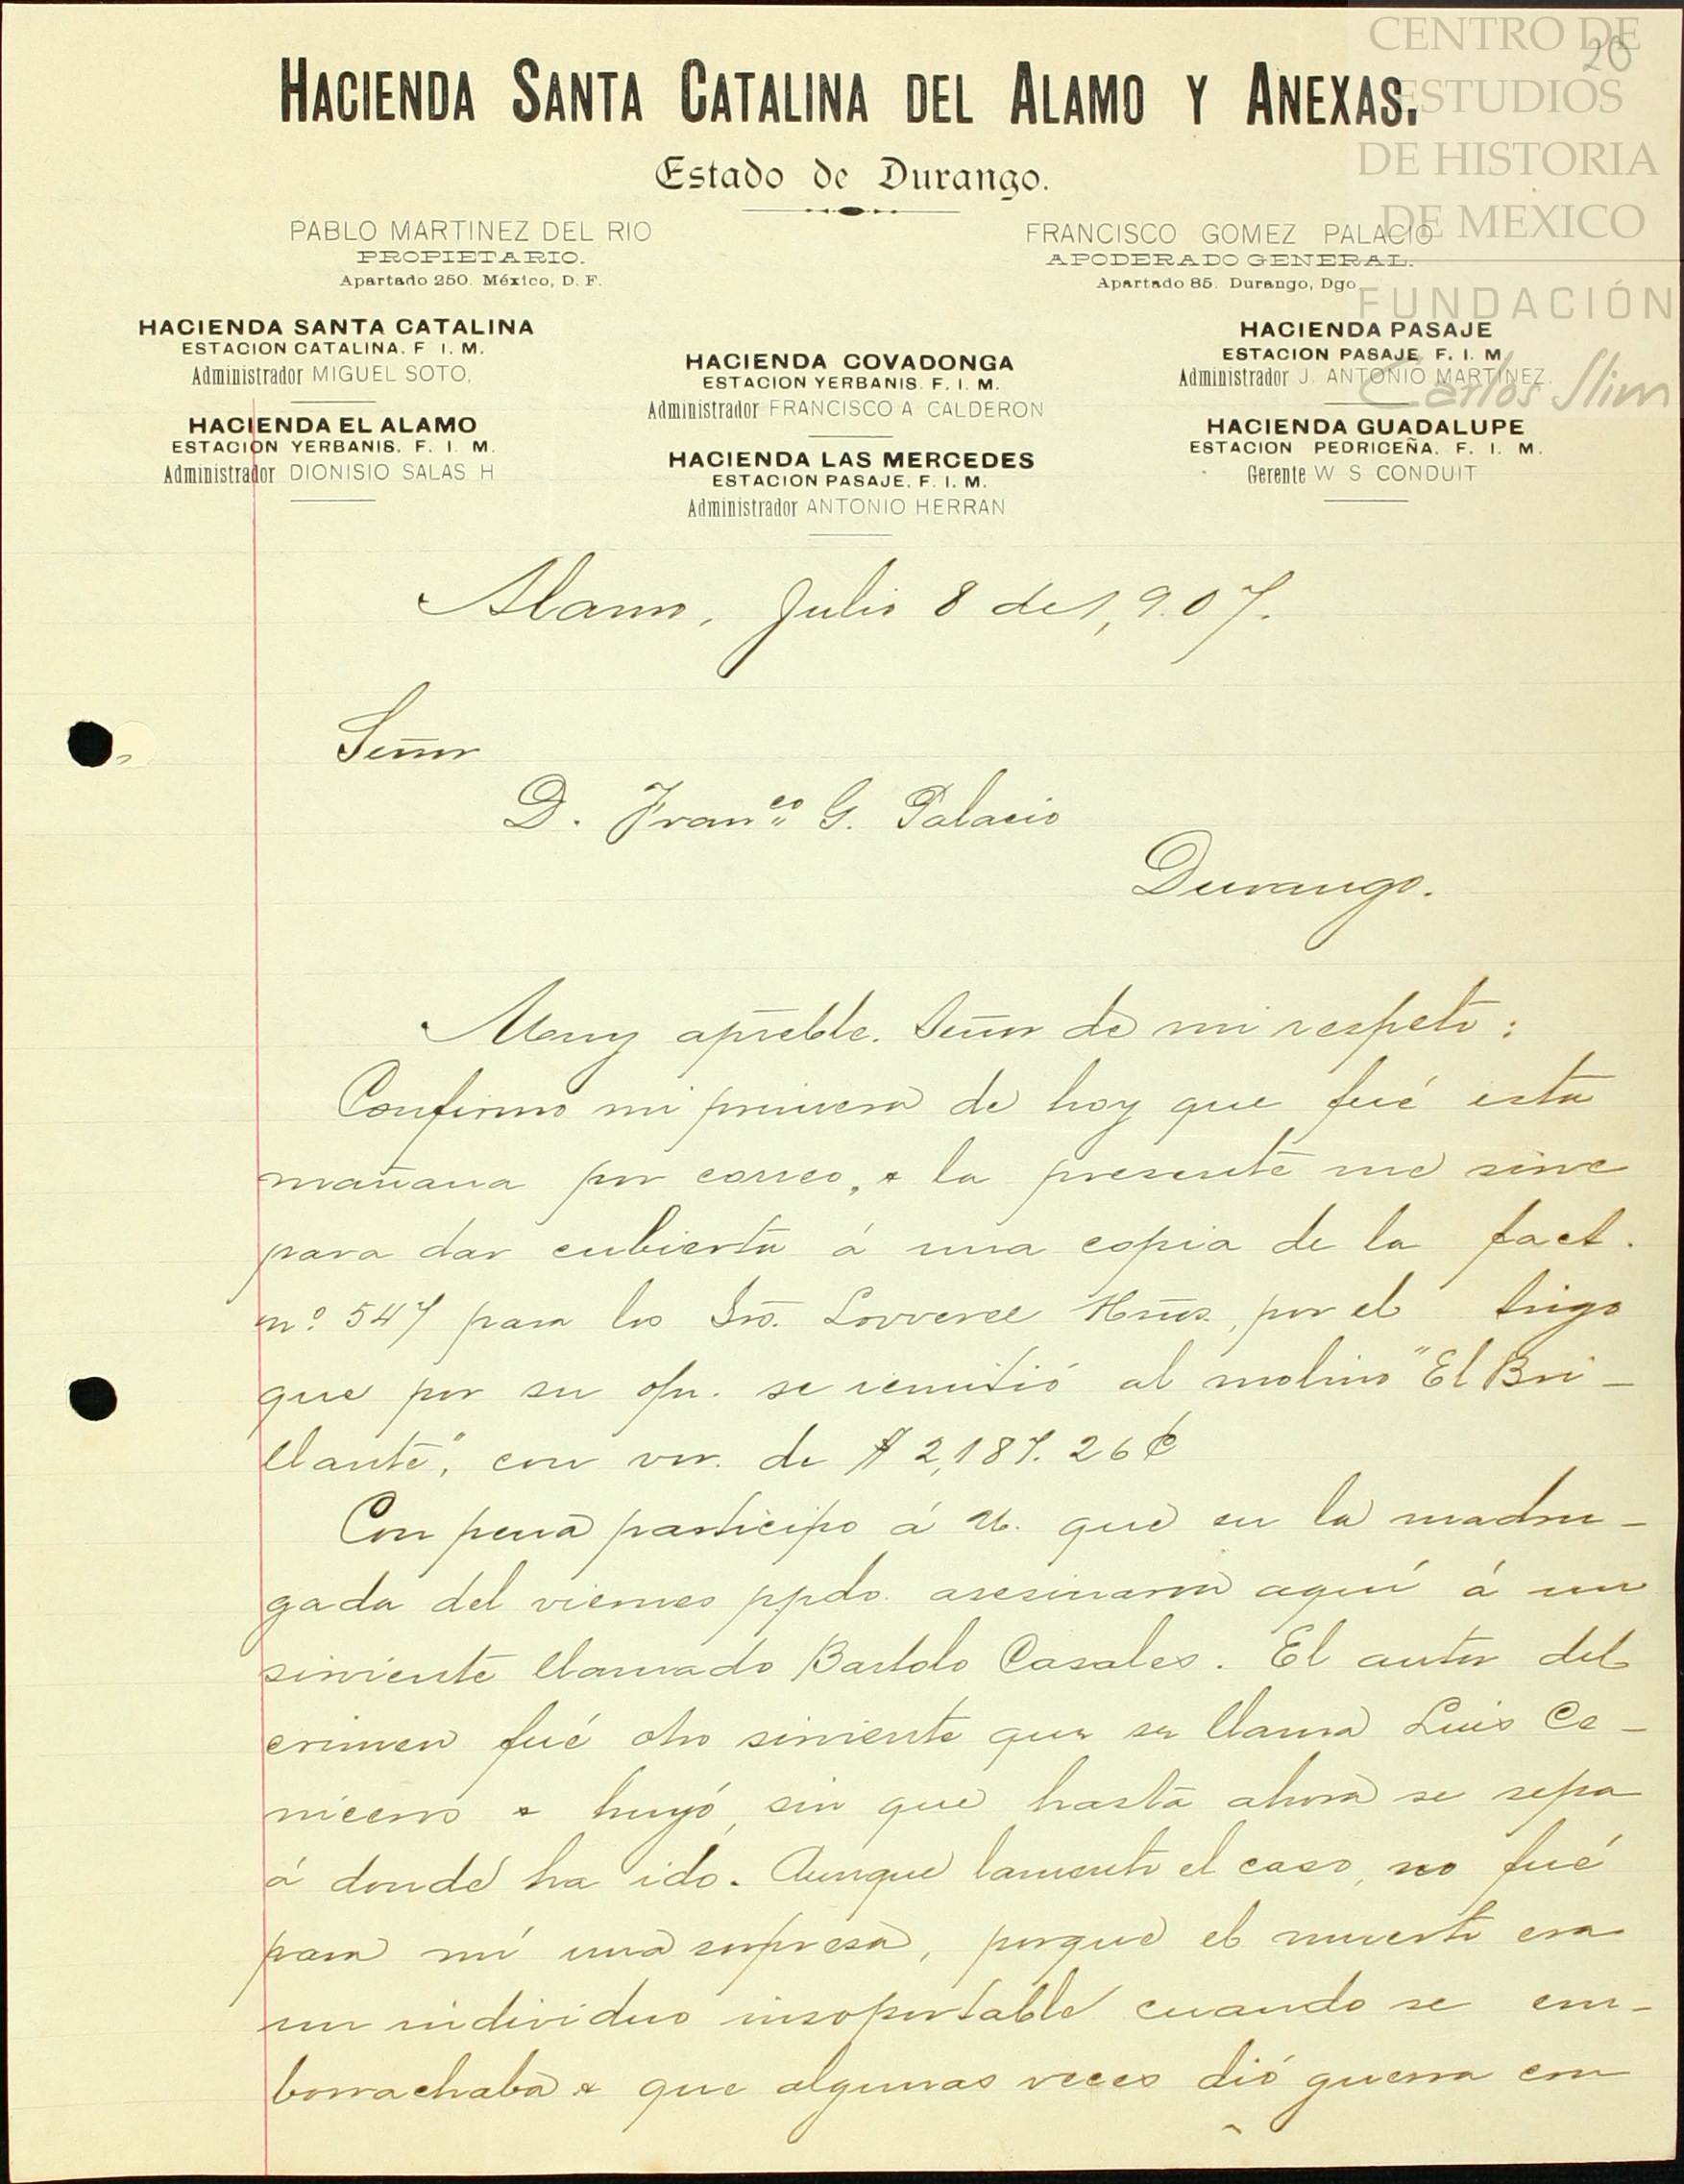 CENTRO DE
ESTUDIOS
DE HISTORIA
DE MEXICO
FUNDACIÓN
Carlos Slim
20
HACIENDA SANTA CATALINA DEL ALAMO Y ANEXAS.
Estado de Durango.
PABLO MARTINEZ DEL RIO
PROPIETARIO.
Apartado 250. México, D. F.
FRANCISCO GOMEZ PALACIO
APODERADO GENERAL.
Apartado 85. Durango, Dgo
HACIENDA SANTA CATALINA
ESTACION CATALINA. F. I. M.
Administrador MIGUEL SOTO.
HACIENDA EL ALAMO
ESTACION YERBANIS. F. I. M.
Administrador DIONISIO SALAS H
HACIENDA COVADONGA
ESTACION YERBANIS. F. I. M.
Administrador FRANCISCO A CALDERON
HACIENDA LAS MERCEDES
ESTACION PASAJE. F. I. M.
Administrador ANTONIO HERRAN
HACIENDA PASAJE
ESTACION PASAJE F. I. M
Administrador J. ANTONIO MARTINEZ.
HACIENDA GUADALUPE
ESTACION PEDRICEÑA. F. I. M.
Gerente W S CONDUIT
Alamo, Julio 8 de 1,907.
Señor
D. Franco G. Palacio
Durango.
Muy apreble. Señor de mi respeto:
Confirmo mi primera de hoy que fué esta
mañana por correo, & la presente me sirve
para dar cubierta á una copia de la fact.
no. 547 para los Sres. Hnos., por el trigo
que por su ofn. se remitió al molino "El Bri-
llante", con vor. de $2,187.26¢
Con pena participo á U. que en la madru-
gada del viernes ppdo. asesinaron aquí á un
sirviente llamado Bartolo Casales. El autor del
crimen fué otro sirviente que se llama Luis Ce-
niceros & huyó, sin que hasta ahora se sepa
á donde ha ido. Aunque lamento el caso, no fué
para mí una sorpresa, porque el muerto era
un individuo insoportable cuando se em-
borrachaba & que algunas veces dió guerra con